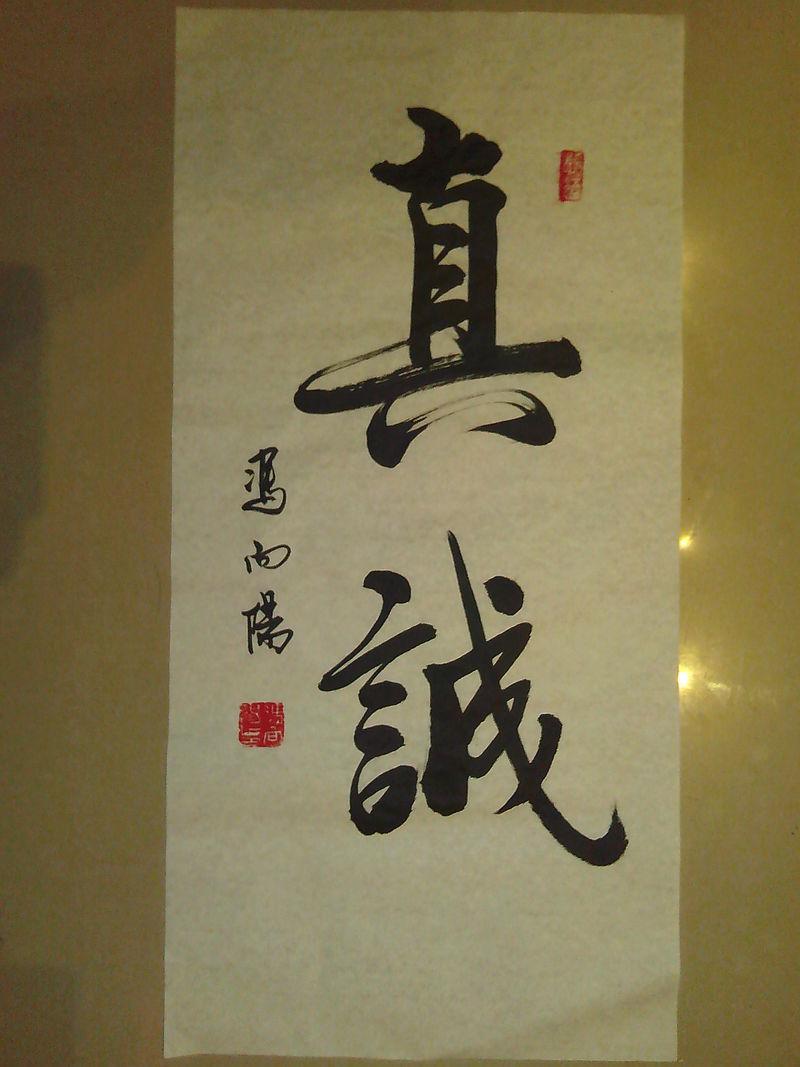 真誠
馮向陽